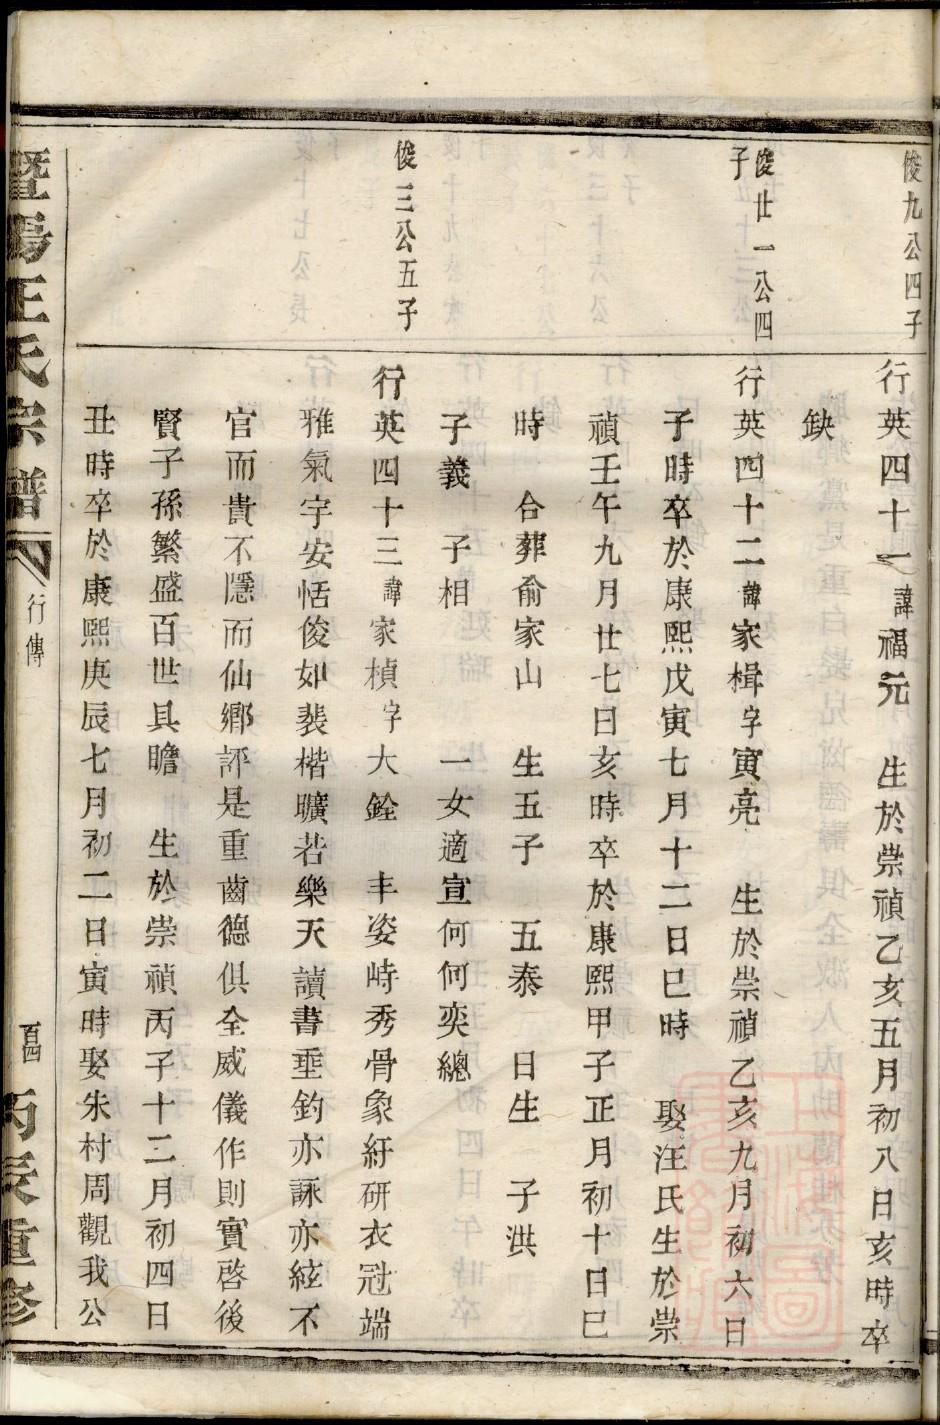 俊九公四子
行英四十一諱福元　生於崇禎乙亥五月初八日亥時卒
缺
俊廿一公四
子
行英四十二諱家楫字寅亮　生於崇禎乙亥九月初六日
子時卒於康熙戊寅七月十二日巳時　娶汪氏生於崇
禎壬午九月廿七日亥時卒於康熙甲子正月初十日巳
時　合葬俞家山　生五子　五泰　日生　子洪
子義　子相　　一女適宣何何奕總
俊三公五子
行英四十三諱家楨字大銓　丰姿峙秀骨象紆研衣冠端
雅氣宇安恬俊如裴楷曠若樂天讀書垂釣亦詠亦絃不
官而貴不隱而仙鄉評是重齒德俱全威儀作則實啓後
賢子孫繁盛百世具瞻　生於崇禎丙子十二月初四日
丑時卒於康熙庚辰七月初二日寅時娶朱村周觀我公
暨陽王氏宗譜
行傳
百四
丙辰重修